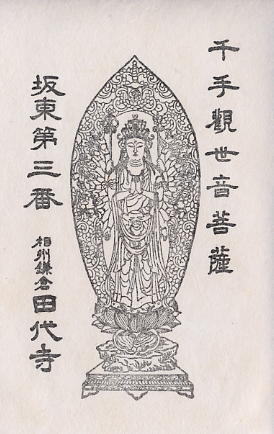 千手觀世音菩薩
坂東第三番
相州鎌倉田代寺